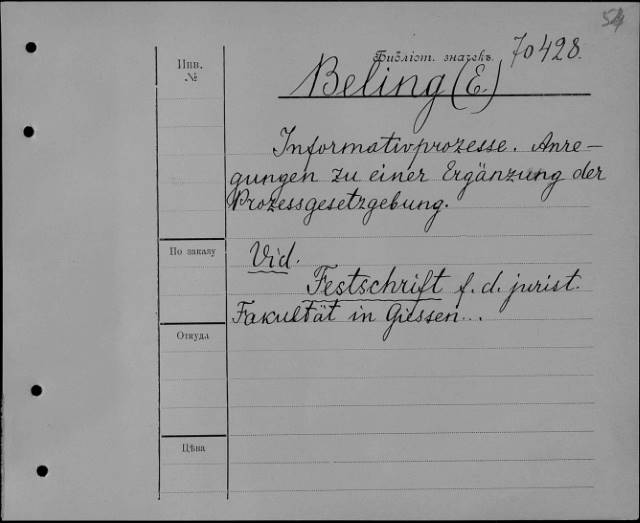 54
Библіот. значекъ. 70428.
Инв.
№
Beling (E.)
Informativprozesse. Anre–
gungen zu einer Ergänzung der
Prozessgesetzgebung.
По заказу
Vid.
Festschrift f. d. jurist.
Fakultät in Giessen...
Откуда
Цѣна